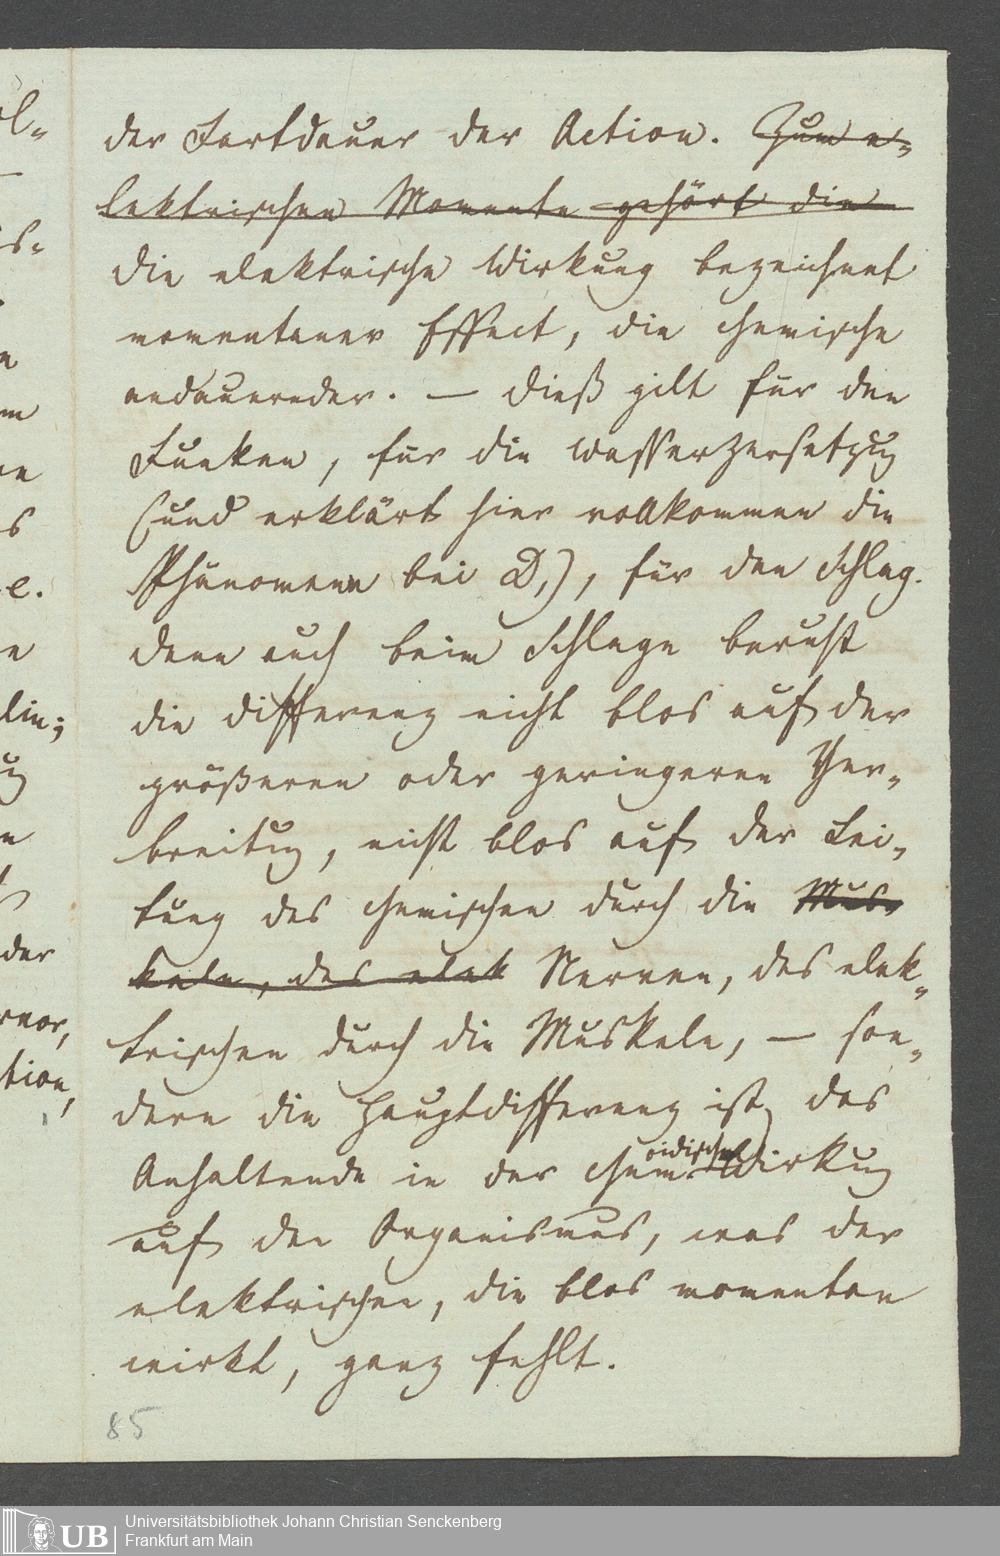 der Fortdauer der Action. Zum e-
lektrischen Momente gehört die
die elektrische Wirkung bezeichnet
momentaner Effect, die chemische
andauernder. — Dieß gilt für den
Funken, für die Wasserzersetzug
(und erklärt hier vollkommen die
Phänomene bei D,), für den Schlag.
denn auch beim Schlage beruht
die Differenz nicht blos auf der
größeren oder geringeren Ver-
breitug, nicht blos auf der Lei-
tung des chemischen durch die Mus-
keln, des elek Nerven, des elek-
trischen durch die Muskeln, — son-
dern die Hauptdifferenz ist das
Anhaltende in der chem Wirkug
auf den Organismus, was der
elektrischen, die blos momentan
wirkt, ganz fehlt.
85
l-
s-
n
m
ne
s
e.
e
lin;
ug
n
der
rvor,
tion,
UB
Universitätsbibliothek Johann Christian Senckenberg
Frankfurt am Main